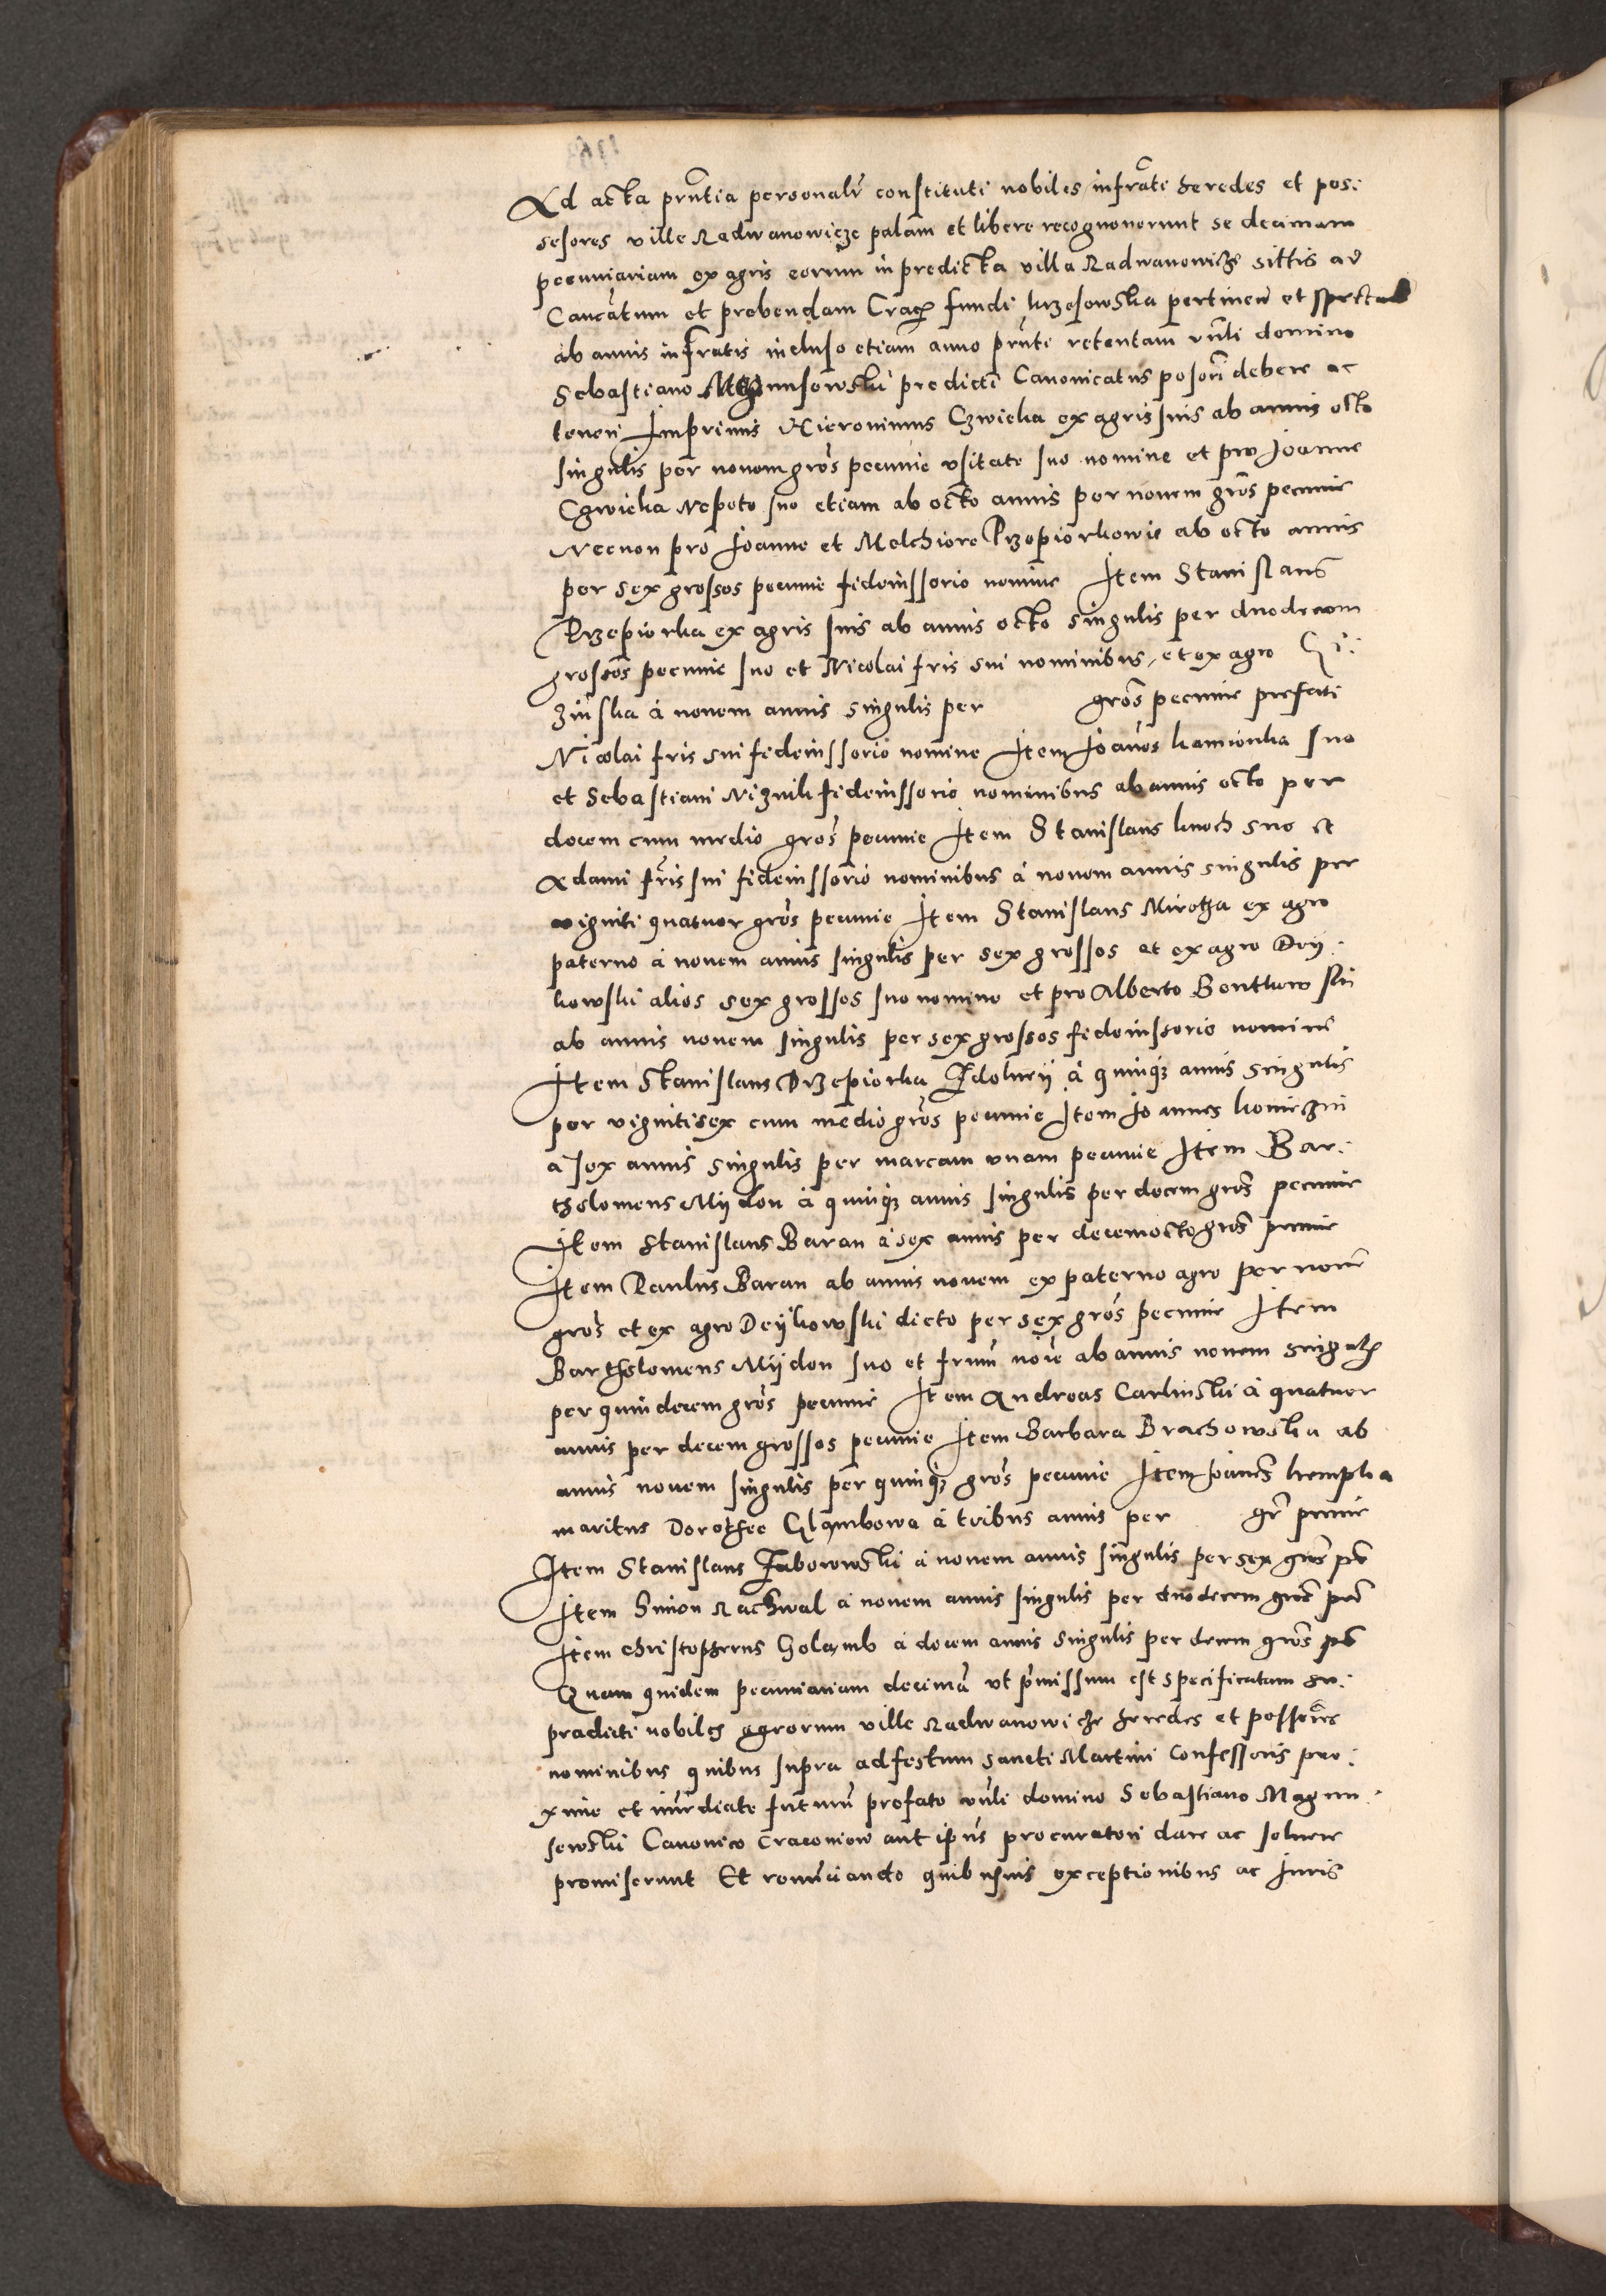 Ad acta pñtia personalr̃ constituti nobiles infrãti heredes et pos:
sesores ville Radwanowicze palam et libere recognouerunt se decimam
pecuniariam ex agris eorum in predicta villa Radwanowicze sittis ad
Canc̃atum et prebendam Crac̃ fundi krzesowska pertineñ et spectañ
ab annis infr̃atis incluso etiam anno pñte retentam vñli domino
Sebastiano Magnusewski predicti Canonicatus posori debere ac
teneri Imprimis Hieronimus Czwieka ex agris suis ab annis octo
singulis per nouem groš pecunie vsitate suo nomine et pro Joanne
Czwieka Nepote suo etiam ab octo annis per nouem groš pecunie
Necnon pro Joanne et Melchiore Przepiorkowie ab octo annis
per sex grossos pecunie fideiussorio nomine Item Stanislaus
Przepiorka ex agris suis ab annis octo singulis per duodecom
grossos pecunie suo et Nicolai fris sui nominibus, et ex agro
zinska à nouem annis singulis per groš pecunie prefati
Nicolai fris sui fideiussorio nomine Item Joañes kamionka suo
et Sebastiani Niznik fideiussorio nominibus ab annis octo per
decem cum medio groš pecunie Item Stanislaus knoch suo et
Adami fr̃is sui fideiussorio nominibus à nouem annis singulis per
viginti quatuor groš pecunie Item Stanislaus Mirotha ex agro
paterno à nouem annis singulis per sex grossos et ex agro Dey:
kowski alios sex grossos suo nomine et pro Alberto Bentkow
ab annis nouem singulis per sex grossos fideiussorio nomine
Item Stanislaus Przepiorka à quinqz annis singulis
per viginti sex cum medio groš pecunie Item Joannes
a sex annis singulis per marcam vnam pecunie Item Bar:
tholomeus Mijdon à quinqz annis singulis per decem groš pecunie
Item Stanislaus Baran à sex annis per decemocto groš pecunie
Item Paulus Baran ab annis nouem ex paterno agro per nouē
groš et ex agro Deijkowski dicto per sex groš pecunie Item
Bartholomeus Mijdon suo et frum noie ab annis nouem singulis
per quindecem groš pecunie Item Andreas Carlinski à quatuor
annis per decem grossos pecunie Item Barbara Brachowska ab
annis nouem singulis per quinqz groš pecunie Item Joanes kempka
maritus Dorothee Glambowa à tribus annis per gr̃ pecunie
Item Stanislaus Jaborowski à nouem annis singulis per sex groš pē
Item Simon Rachwal à nouem annis singulis per duodecem groš pē
Item Christopherus Golamb à decem annis singulis per decem groš pē
Quam quidem pecuniariam decimã vt p̃missum est specificatam su:
pradicti nobiles agrorum ville Radwanowicze heredes et possores
nominibus quibus supra ad festum sancti Martini Confessoris pro:
xime et im̃ediate futurũ prefato vñli domino Sebastiano Magnu:
sewski Canonico Cracouien̄ aut ipius procuratori dare ac soluere
promiserunt Et renũciando quibusuis exceptionibus ac Iuris